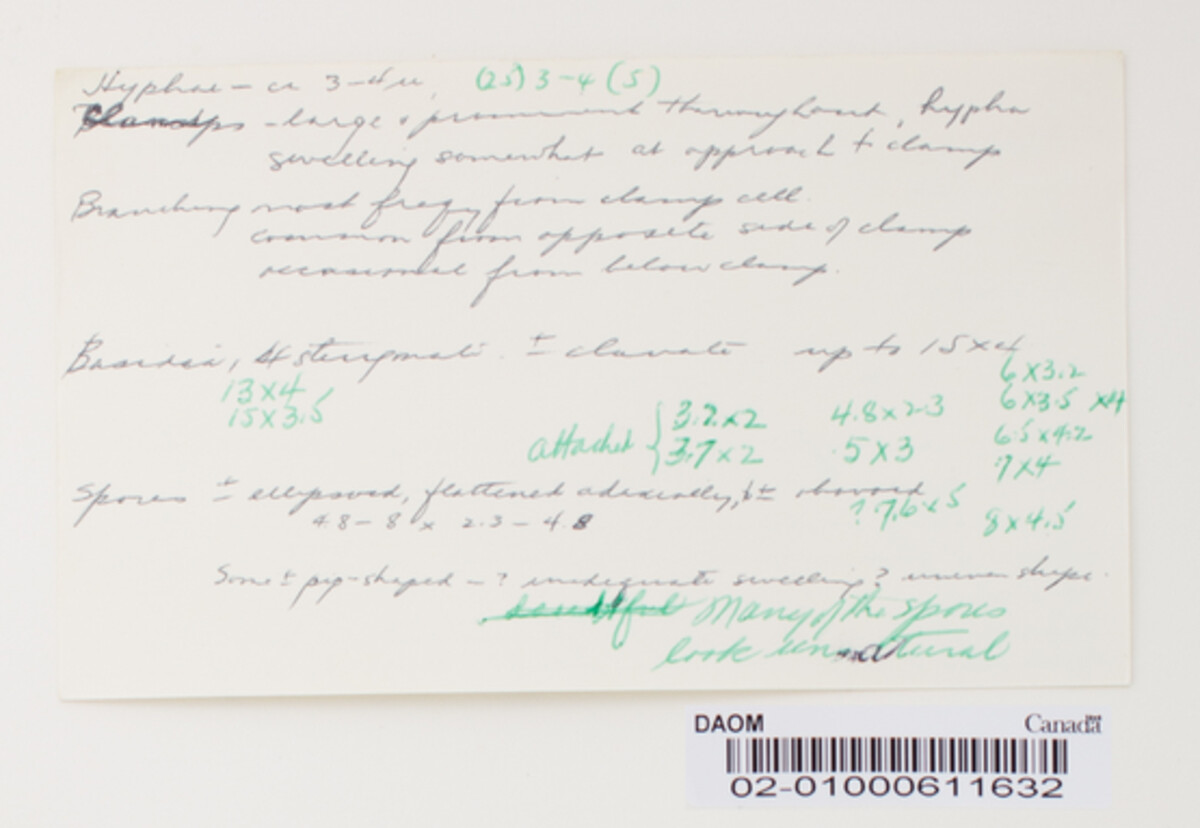 Hyphae - ca 3-4u, (25) 3-4 (5)
Clamps - large & prominent throughout, hypha
swelling somewhat at approach to clamp
Branching most freqy from clamp cell.
common from opposite side of clamp
occasional from below clamp.
Basidia, 4 sterigmati. ± clavate up to 15x4
13x4
15x3.5
attached { 3.2x2
3.7x2
4.8x2.3
5x3
6x3.2
6x3.5 x4
6.5x4.2
7x4
Spores ± ellipsoid, flattened adaxially, ± obovoid
4.8-8 x 2.3-4.8
? 7.6x5
8x4.5
Some ± pip-shaped - ? inadequate swelling? uneven shape.
doubtful Many of the spores
look unnatural
DAOM Canada
02-01000611632